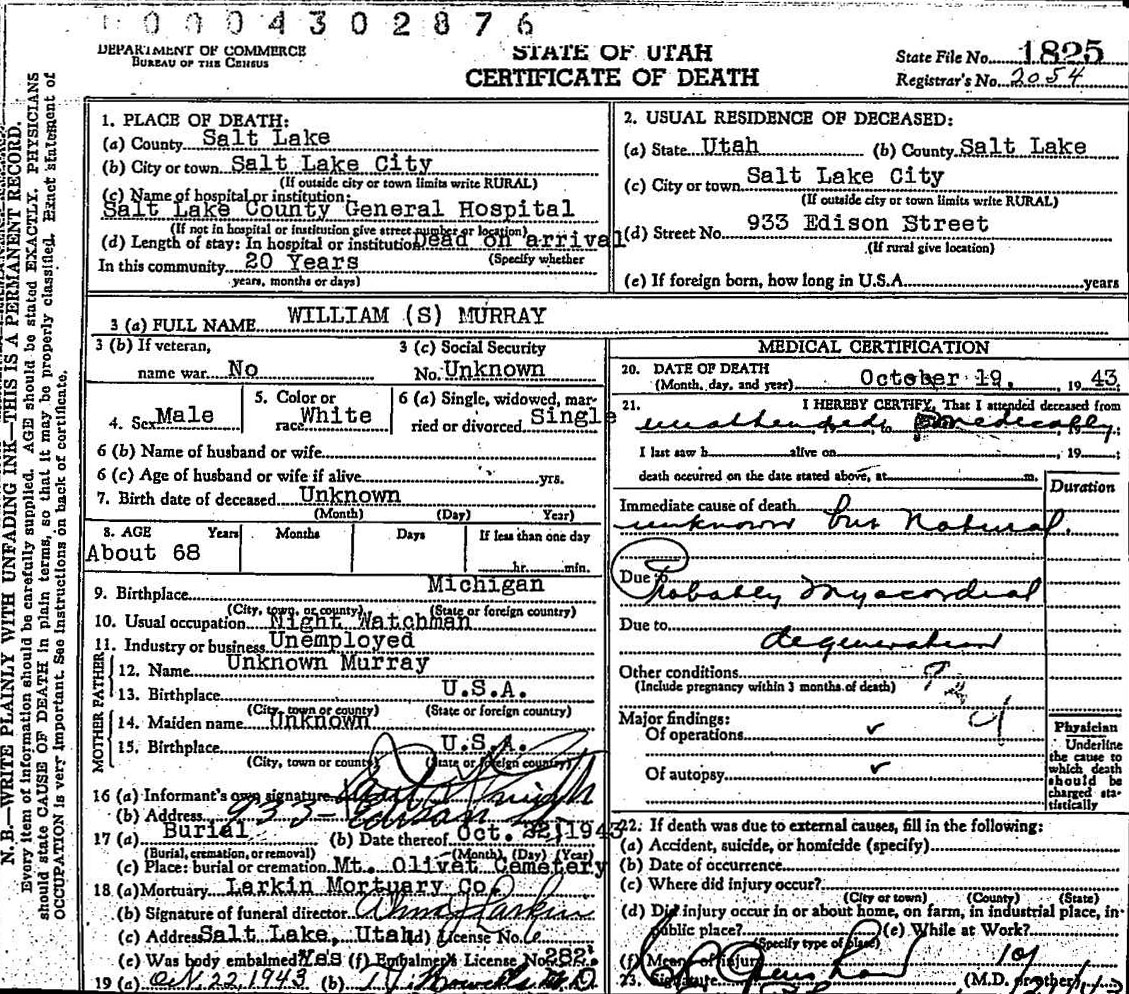 0004302876
DEPARTMENT OF COMMERCE
BUREAU OF THE CENSUS
STATE OF UTAH
CERTIFICATE OF DEATH
State File No. 1825
Registrar's No. 2054
N. B.—WRITE PLAINLY WITH UNFADING INK—THIS IS A PERMANENT RECORD.
Every item of information should be carefully supplied. AGE should be stated EXACTLY. PHYSICIANS
should state CAUSE OF DEATH in plain terms, so that it may be properly classified. Exact statement of
OCCUPATION is very important. See instructions on back of certificate.
1. PLACE OF DEATH:
(a) County Salt Lake
(b) City or town Salt Lake City
(If outside city or town limits write RURAL)
(c) Name of hospital or institution:
Salt Lake County General Hospital
(If not in hospital or institution give street number or location)
(d) Length of stay: In hospital or institution Dead on arrival
(Specify whether
In this community 20 Years
years, months or days)
2. USUAL RESIDENCE OF DECEASED:
(a) State Utah (b) County Salt Lake
(c) City or town Salt Lake City
(If outside city or town limits write RURAL)
(d) Street No. 933 Edison Street
(If rural give location)
(e) If foreign born, how long in U.S.A. years
3 (a) FULL NAME WILLIAM (S) MURRAY
3 (b) If veteran,
name war No
3 (c) Social Security
No. Unknown
4. Sex Male
5. Color or
race White
6 (a) Single, widowed, mar-
ried or divorced Single
6 (b) Name of husband or wife
6 (c) Age of husband or wife if alive yrs.
7. Birth date of deceased Unknown
(Month) (Day) Year)
8. AGE Years Months Days If less than one day
About 68 hr. min.
9. Birthplace Michigan
(City, town, or county) (State or foreign country)
10. Usual occupation Night Watchman
11. Industry or business Unemployed
FATHER
12. Name Unknown Murray
13. Birthplace U.S.A.
(City, town or county) (State or foreign country)
MOTHER
14. Maiden name Unknown
15. Birthplace U.S.A.
(City, town or county) (State or foreign country)
16 (a) Informant's own signature
(b) Address 933 - Edison St
17 (a) Burial (b) Date thereof Oct. 22, 1943
(Burial, cremation, or removal) (Month) (Day) (Year)
(c) Place: burial or cremation Mt. Olivet Cemetery
18 (a) Mortuary Larkin Mortuary Co.
(b) Signature of funeral director Larkin
(c) Address Salt Lake, Utah (d) License No. 6
(e) Was body embalmed Yes (f) Embalmer's License No. 282
19 (a) Oct. 22, 1943 (b) M.D.
MEDICAL CERTIFICATION
20. DATE OF DEATH
(Month, day, and year) October 19, 1943
21. I HEREBY CERTIFY, That I attended deceased from
unattended medically
I last saw h alive on , 19 ;
death occurred on the date stated above, at m.
Duration
Immediate cause of death
unknown but Natural.
Due to
Probably Myocordial
Due to
degeneration
Other conditions
(Include pregnancy within 3 months of death)
Major findings:
Of operations ✓
Of autopsy ✓
Physician
Underline
the cause to
which death
should be
charged sta-
tistically
22. If death was due to external causes, fill in the following:
(a) Accident, suicide, or homicide (specify)
(b) Date of occurrence
(c) Where did injury occur?
(City or town) (County) (State)
(d) Did injury occur in or about home, on farm, in industrial place, in
public place? (e) While at Work?
(Specify type of place)
(f) Means of injury
23. Signature (M.D. or other)